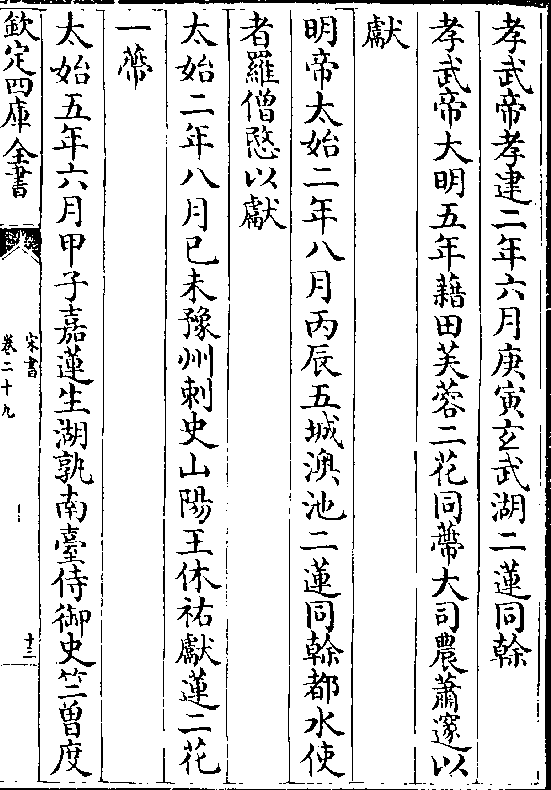 孝武帝孝建二年六月庚寅玄武湖二蓮同榦
孝武帝大明五年藉田芙蓉二花同蔕大司農蕭邃以
獻
明帝太始二年八月丙辰五城澳池二蓮同榦都水使
者羅僧愍以獻
太始二年八月已未豫州刺史山陽王休祐獻蓮二花
一蔕
太始五年六月甲子嘉蓮生湖孰南臺侍御史竺曽度
欽定四庫全書
宋書
卷二十九
十三